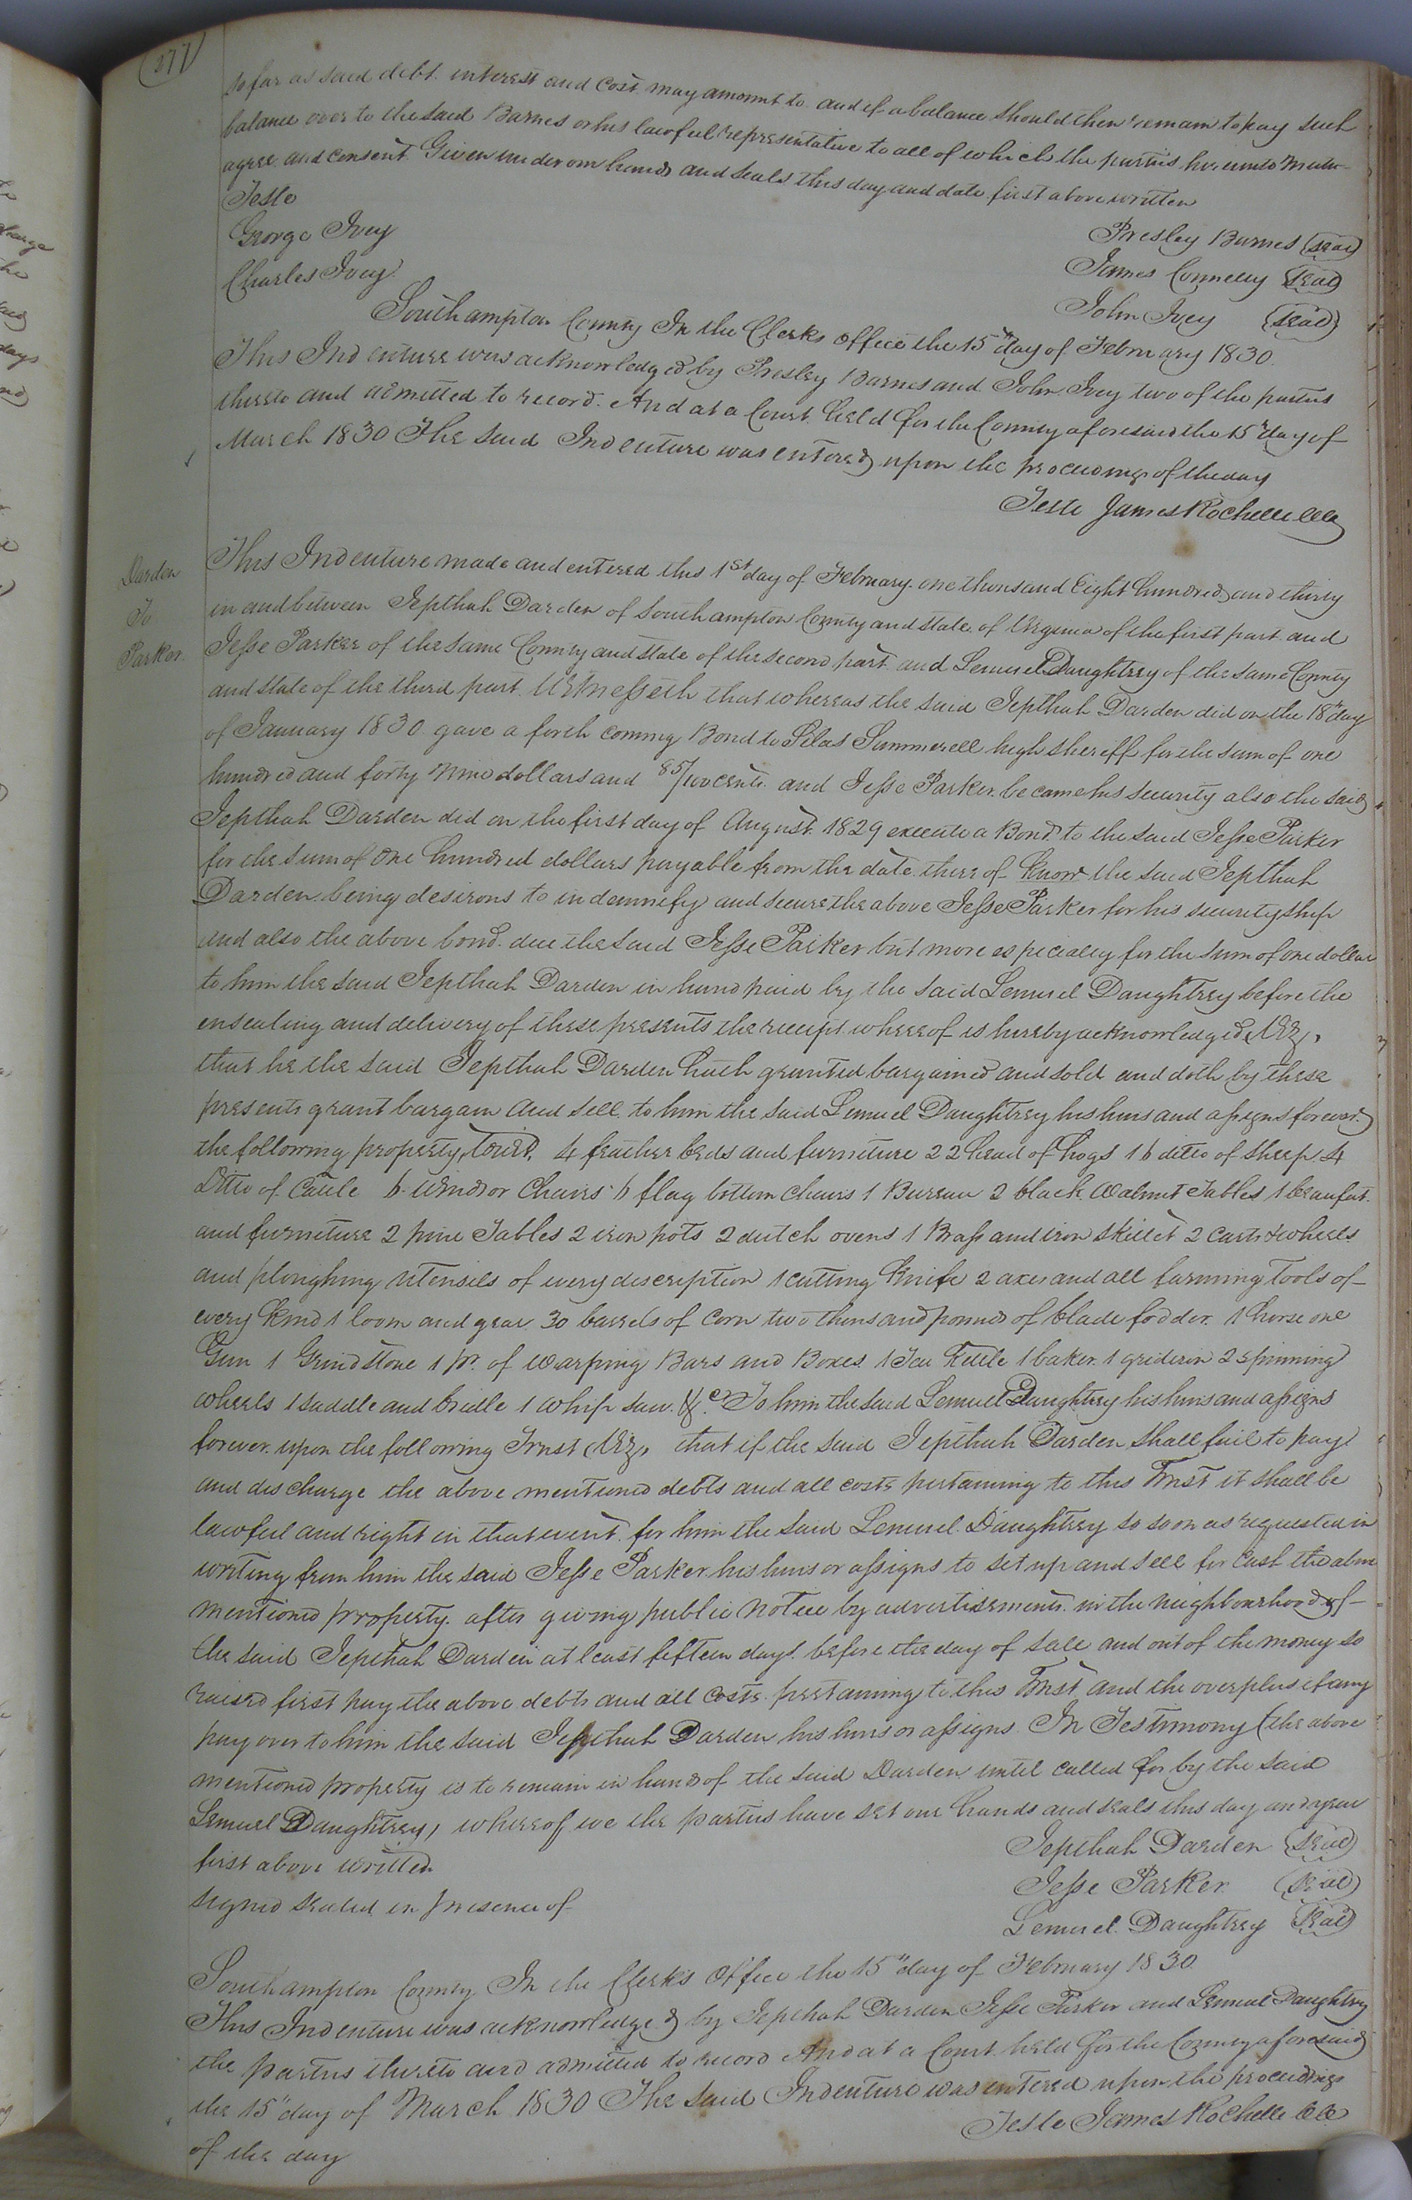 277
so far as said debt interest and cost may amount to and if a balance should then remain to pay such
balance over to the said Barnes or his lawful representative to all of which the parties hereunto mutu-
agree and consent Given under our hands and seals this day and date first above written
Teste
George Ivey
Charles Ivey
Presley Barnes (seal)
James Connelly (seal)
John Ivey (seal)
Southampton County In the Clerks office the 15th day of February 1830.
This Indenture was acknowledged by Presley Barnes and John Ivey two of the parties
thereto and admitted to record. And at a Court held for the County aforesaid the 15th day of
March 1830 The said Indenture was entered upon the proceedings of the day
Teste James Rochelle CC
Darden
To
Parker
This Indenture made and entered this 1st day of February one thousand Eight hundred and thirty
in and between Jepthah Darden of Southampton County and state of Virginia of the first part and
Jesse Parker of the same County and state of the second part and Lemuel Daughtrey of the same County
and state of the third part Witnesseth that whereas the said Jepthah Darden did on the 18th day
of January 1830 gave a forth coming Bond to Silas Summerell high sheriff for the sum of one
hundred and forty nine dollars and 85/100 cents and Jesse Parker became his security also the said
Jepthah Darden did on the first day of August 1829 execute a Bond to the said Jesse Parker
for the sum of One hundred dollars payable from the date there of Know the said Jepthah
Darden being desirous to indemnify and secure the above Jesse Parker for his securityship
and also the above bond due the said Jesse Parker but more especially for the sum of one dollar
to him the said Jepthah Darden in hand paid by the said Lemuel Daughtrey before the
ensealing and delivery of these presents the receipt whereof is hereby acknowledged, Viz,
that he the said Jepthah Darden hath granted bargained and sold and doth by these
presents grant bargain and sell to him the said Lemuel Daughtrey his heirs and assigns forever
the following property, towit, 4 feather beds and furniture 22 head of hogs 16 ditto of sheep 4
Ditto of Cattle 6 Windsor Chairs 6 flag bottom chairs 1 Bureau 2 black Walnut Tables 1 beaufat
and furniture 2 pine Tables 2 iron pots 2 dutch ovens 1 Brass and iron skillet 2 carts & wheels
and ploughing utensils of every description 1 cutting Knife 2 axes and all farming tools of
every kind 1 loom and gear 30 barrels of corn two thousand pounds of blade fodder 1 horse one
Gun 1 Grindstone 1 pr. of warping Bars and Boxes 1 Tea Kettle 1 baker 1 gridiron 2 spinning
wheels 1 saddle and bridle 1 whip saw &c To him the said Lemuel Daughtrey his heirs and assigns
forever upon the following Trust, Viz, that if the said Jepthah Darden shall fail to pay
and discharge the above mentioned debts and all costs pertaining to this Trust it shall be
lawful and right in that event for him the said Lemuel Daughtrey so soon as requested in
writing from him the said Jesse Parker his heirs or assigns to set up and sell for Cash the above
mentioned property after giving public notice by advertisements in the neighbourhood of
the said Jepthah Darden at least fifteen days before the day of sale and out of the money so
raised first pay the above debts and all costs pertaining to this Trust and the overplus if any
pay over to him the said Jepthah Darden his heirs or assigns In Testimony (the above
mentioned property is to remain in hand of the said Darden until called for by the said
Lemuel Daughtrey) whereof we the parties have set our hands and seals this day and year
first above written
signed sealed in presence of
Jepthah Darden (seal)
Jesse Parker (seal)
Lemuel Daughtrey (seal)
Southampton County In the Clerks office the 15th day of February 1830
This Indenture was acknowledged by Jepthah Darden Jesse Parker and Lemuel Daughtrey
the parties thereto and admitted to record And at a Court held for the County aforesaid
the 15th day of March 1830 The said Indenture was entered upon the proceedings
of the day
Teste James Rochelle CC